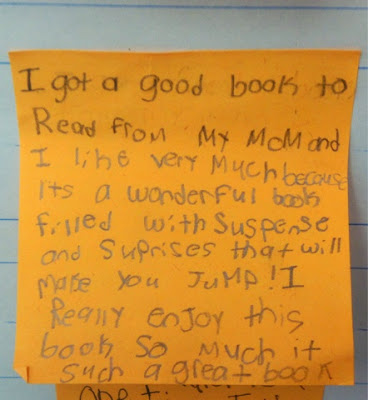 I got a good book to
Read from My MoM and
I like very Much because
Its a wonderful book
filled with Suspense
and Suprises that will
Make you JuMP! I
Really enjoy this
book So Much it
Such a great book